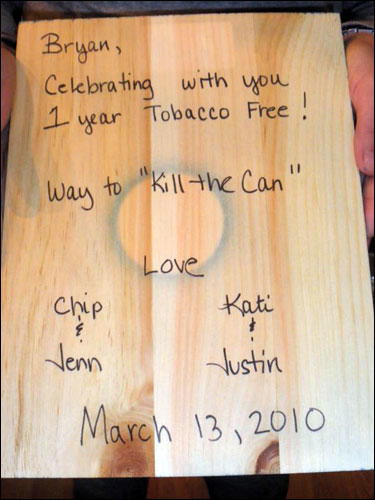 Bryan,
Celebrating with you
1 year Tobacco Free!
Way to "Kill the Can"
Love
Chip Kati
& &
Jenn Justin
March 13, 2010